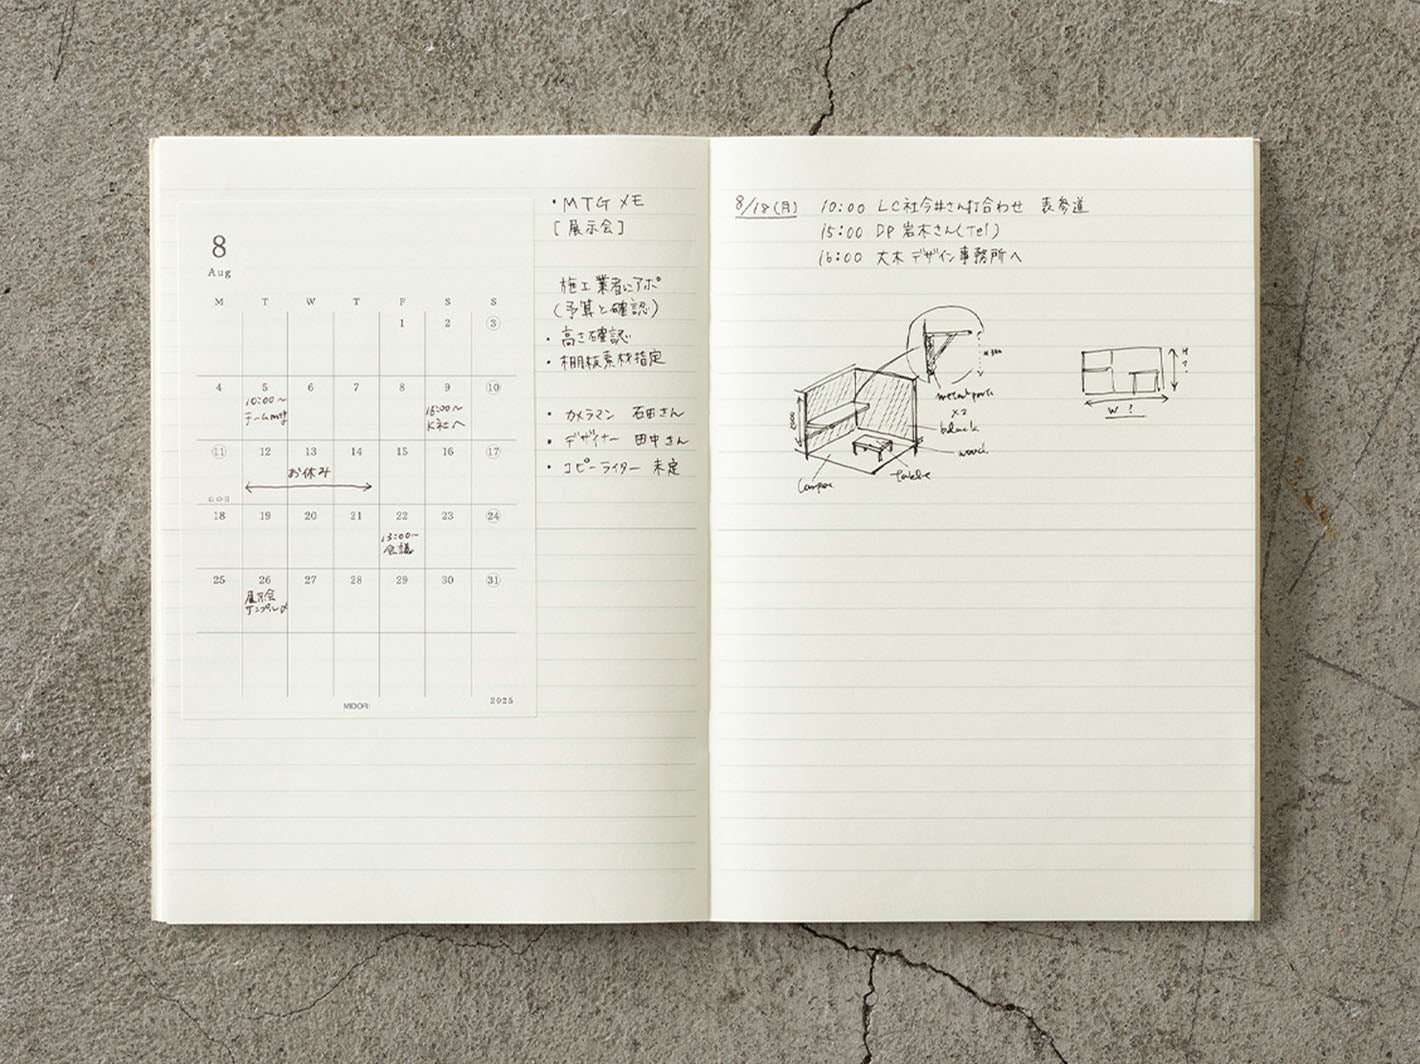 8
Aug
M T W T F S S
1 2 3
4 5 6 7 8 9 10
10:00〜
チームmtg
15:00〜
K社へ
11 12 13 14 15 16 17
お休み
山の日
18 19 20 21 22 23 24
13:00〜
会議
25 26 27 28 29 30 31
展示会
サンプル〆
MIDORI
2025
・MTGメモ
[展示会]
施工業者にアポ
(予算と確認)
・高さ確認
・棚板素材指定
・カメラマン 石田さん
・デザイナー 田中さん
・コピーライター 未定
8/18(月) 10:00 LC社今井さん打合わせ 表参道
15:00 DP 岩木さん(Tel)
16:00 大木デザイン事務所へ
metal parts
x2
black
wood
table
H
?
W ?